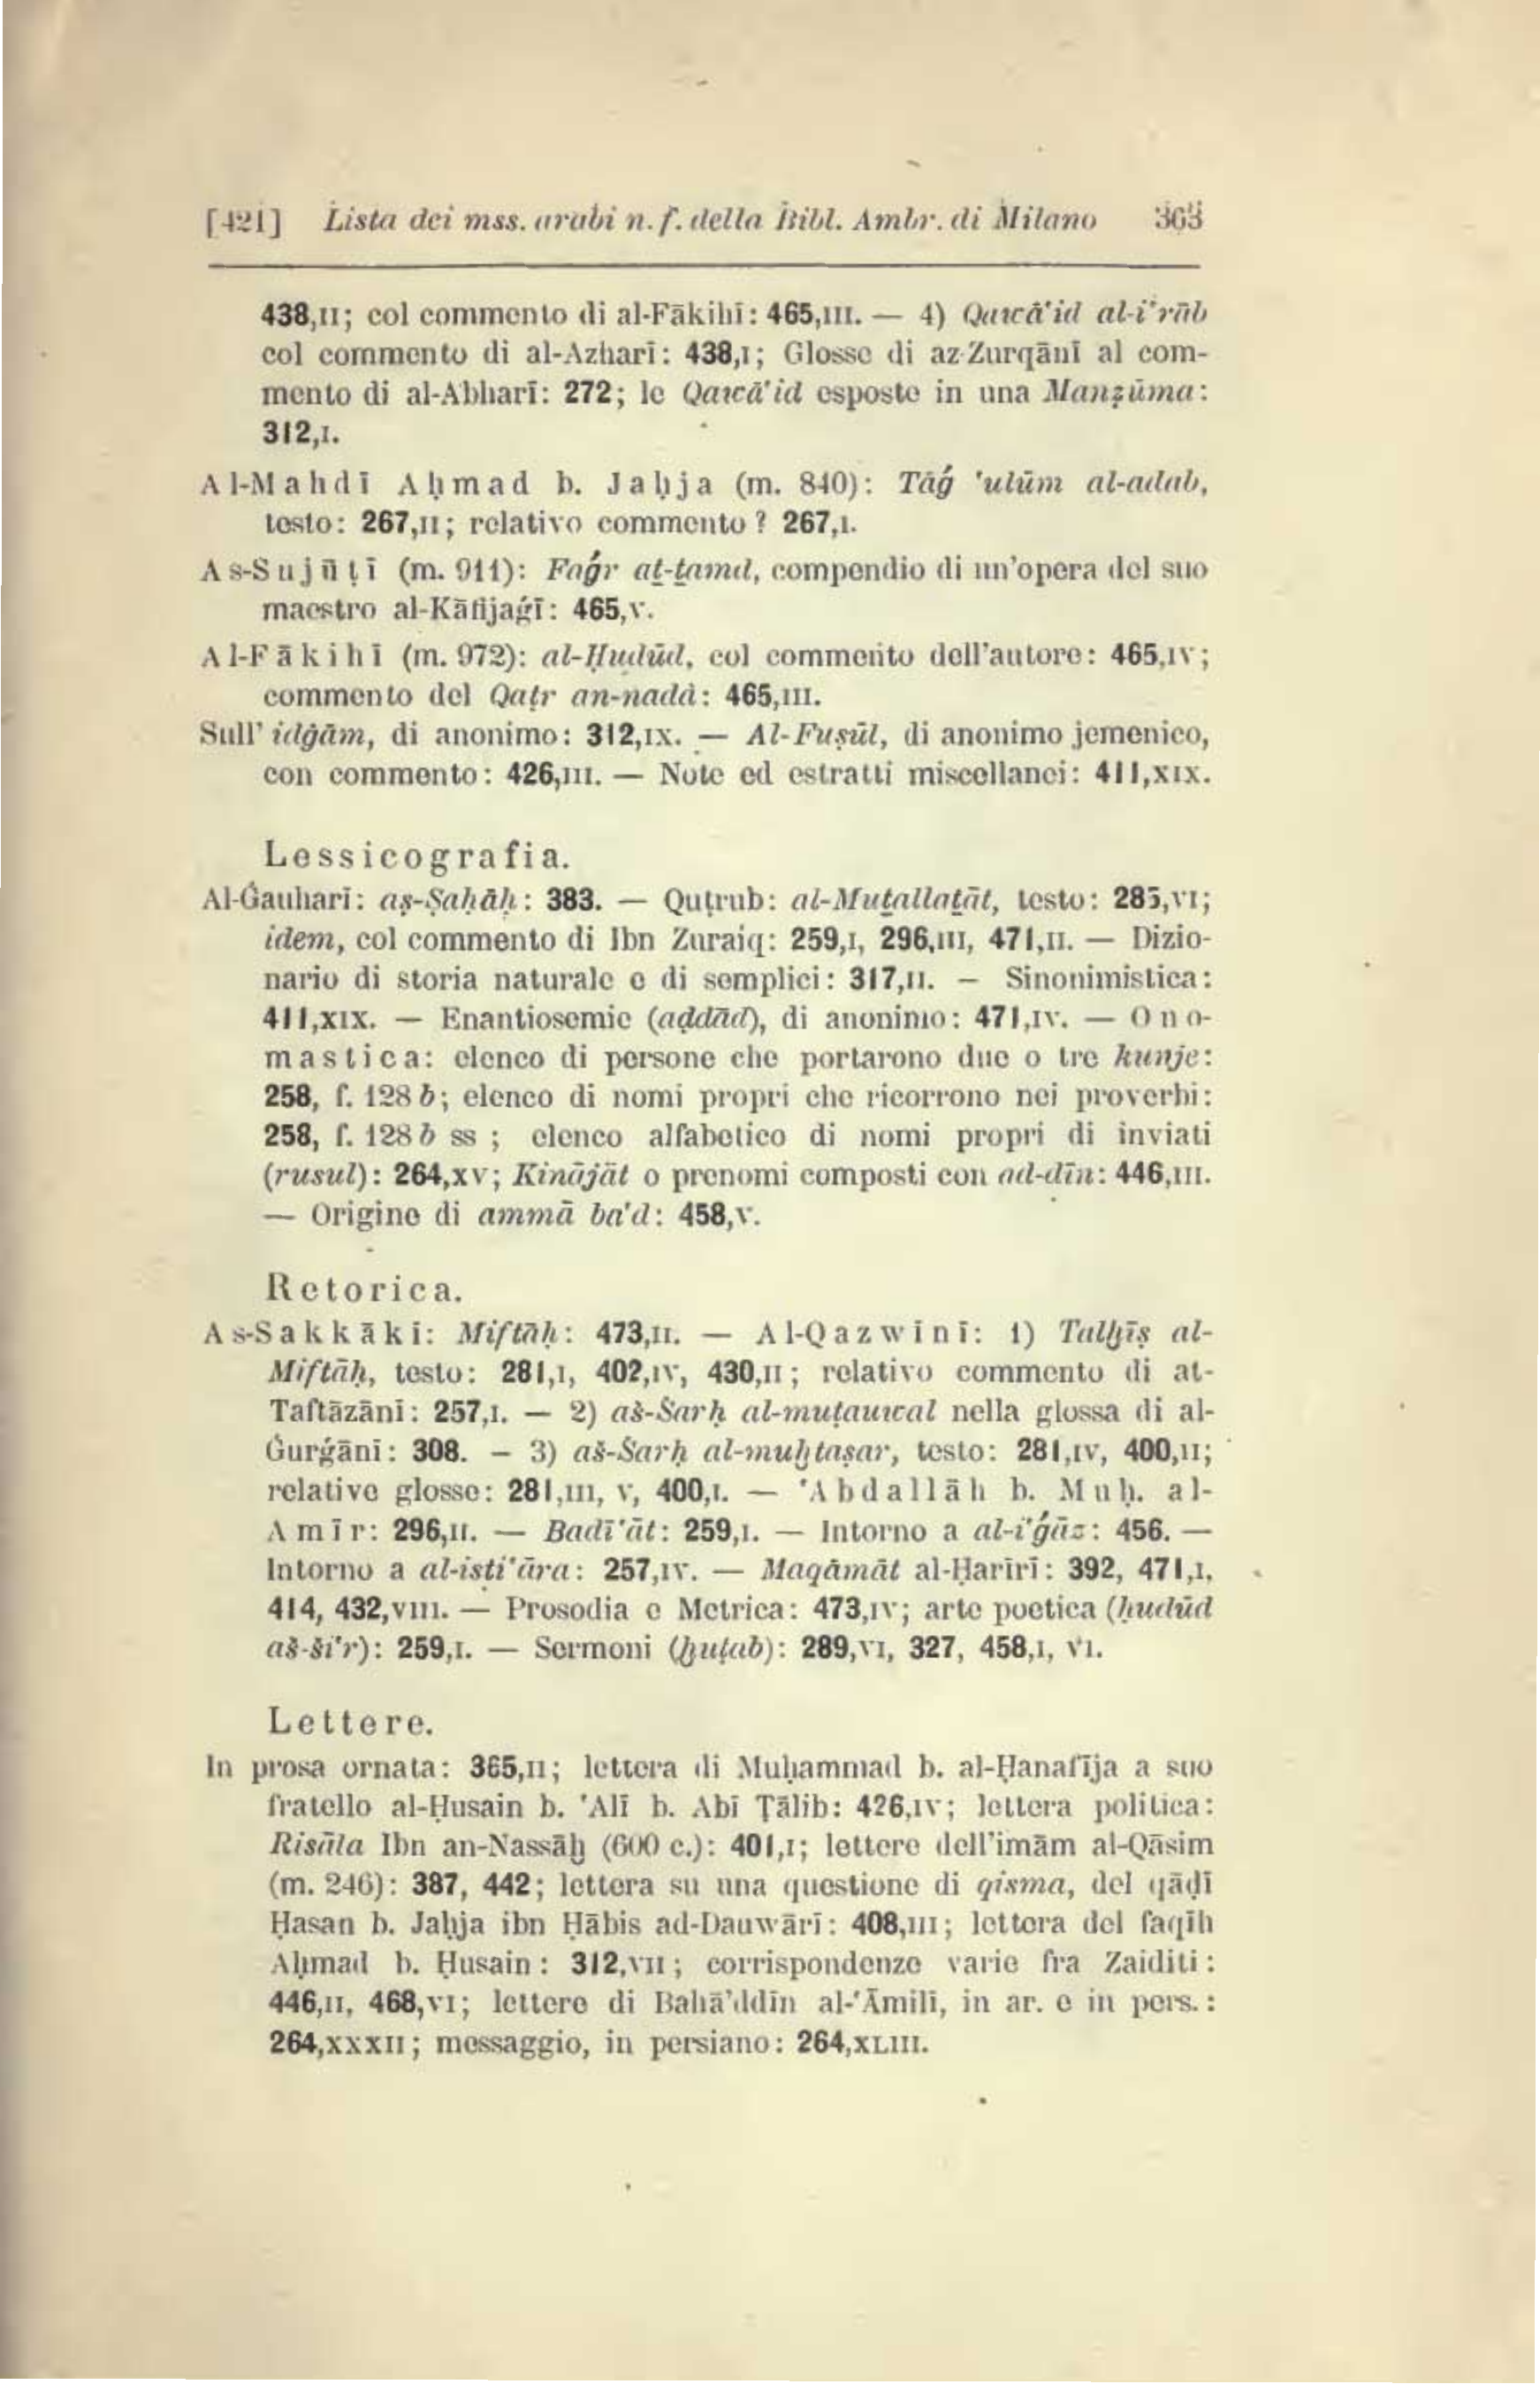 [421] Lista dei mss. arabi n. f. della Bibl. Ambr. di Milano 363
438,II; col commento di al-Fākihī: 465,III. — 4) Qawā'id al-i'rāb
col commento di al-Azharī: 438,I; Glosse di az-Zurqānī al com-
mento di al-Abharī: 272; le Qawā'id esposte in una Manẓūma:
312,I.
Al-Mahdī Aḥmad b. Jaḥja (m. 840): Tāǵ 'ulūm al-adab,
testo: 267,II; relativo commento? 267,I.
As-Sujūṭī (m. 911): Faǵr aṯ-ṯamd, compendio di un'opera del suo
maestro al-Kāfijaǵī: 465,V.
Al-Fākihī (m. 972): al-Ḥudūd, col commento dell'autore: 465,IV;
commento del Qaṭr an-nadà: 465,III.
Sull' idġām, di anonimo: 312,IX. — Al-Fuṣūl, di anonimo jemenico,
con commento: 426,III. — Note ed estratti miscellanei: 411,XIX.
Lessicografia.
Al-Ǵauharī: aṣ-Ṣaḥāḥ: 383. — Quṭrub: al-Muṯallaṯāt, testo: 285,VI;
idem, col commento di Ibn Zuraiq: 259,I, 296,III, 471,II. — Dizio-
nario di storia naturale e di semplici: 317,II. — Sinonimistica:
411,XIX. — Enantiosemie (aḍdād), di anonimo: 471,IV. — Ono-
mastica: elenco di persone che portarono due o tre kunje:
258, f. 128 b; elenco di nomi propri che ricorrono nei proverbi:
258, f. 128 b ss ; elenco alfabetico di nomi propri di inviati
(rusul): 264,XV; Kinājāt o prenomi composti con ad-dīn: 446,III.
— Origine di ammā ba'd: 458,V.
Retorica.
As-Sakkākī: Miftāḥ: 473,II. — Al-Qazwīnī: 1) Talḫīṣ al-
Miftāḥ, testo: 281,I, 402,IV, 430,II; relativo commento di at-
Taftāzānī: 257,I. — 2) aš-Šarḥ al-muṭauwal nella glossa di al-
Ǵurǵānī: 308. — 3) aš-Šarḥ al-muḫtaṣar, testo: 281,IV, 400,II;
relative glosse: 281,III, V, 400,I. — 'Abdallāh b. Muḥ. al-
Amīr: 296,II. — Badī'āt: 259,I. — Intorno a al-i'ǵāz: 456. —
Intorno a al-isti'āra: 257,IV. — Maqāmāt al-Ḥarīrī: 392, 471,I,
414, 432,VIII. — Prosodia e Metrica: 473,IV; arte poetica (ḥudūd
aš-ši'r): 259,I. — Sermoni (ḫuṭab): 289,VI, 327, 458,I, VI.
Lettere.
In prosa ornata: 365,II; lettera di Muḥammad b. al-Ḥanafīja a suo
fratello al-Ḥusain b. 'Alī b. Abī Ṭālib: 426,IV; lettera politica:
Risāla Ibn an-Nassāḫ (600 c.): 401,I; lettere dell'imām al-Qāsim
(m. 246): 387, 442; lettera su una questione di qisma, del qāḍī
Ḥasan b. Jaḥja ibn Ḥābis ad-Dauwārī: 408,III; lettera del faqīh
Aḥmad b. Ḥusain: 312,VII; corrispondenze varie fra Zaiditi:
446,II, 468,VI; lettere di Bahā'ddīn al-'Āmilī, in ar. e in pers.:
264,XXXII; messaggio, in persiano: 264,XLIII.